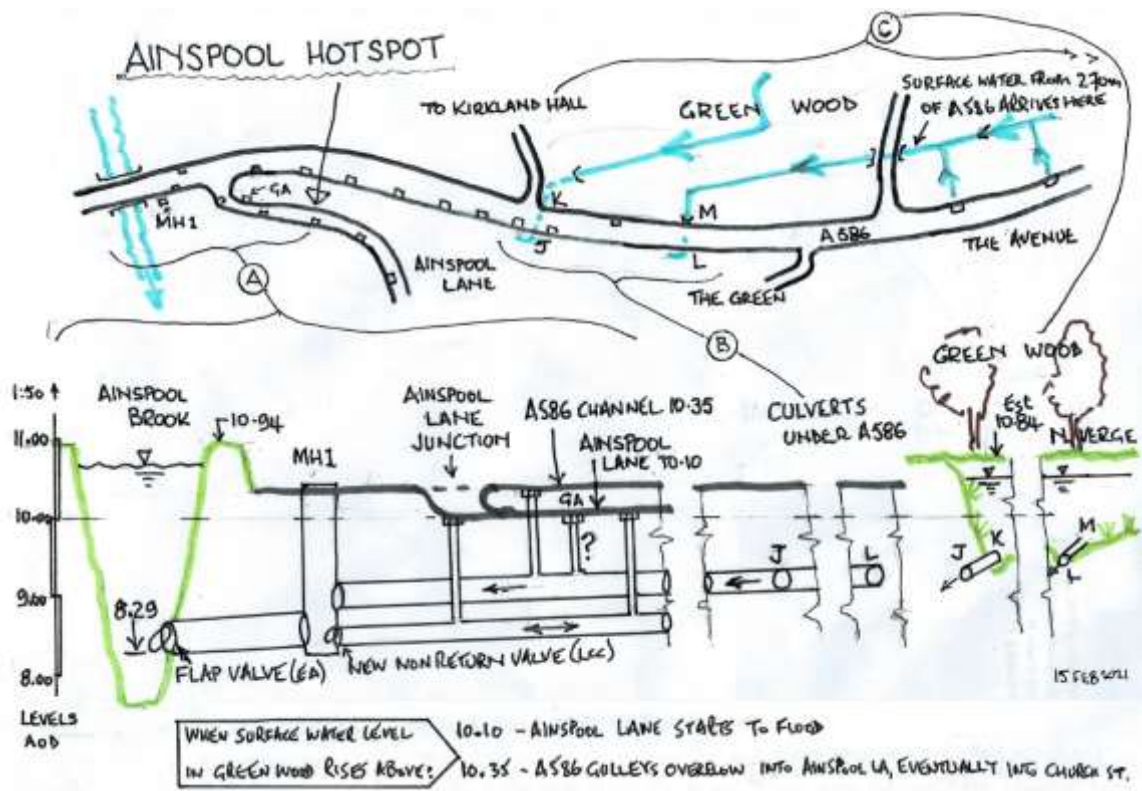 AINSPOOL HOTSPOT
C
TO KIRKLAND HALL
GREEN WOOD
SURFACE WATER FROM 270m
OF A586 ARRIVES HERE
GA
MH1
K
J
M
L
A586
THE AVENUE
AINSPOOL
LANE
THE GREEN
A
B
1:50
AINSPOOL
BROOK
10.94
MH1
AINSPOOL
LANE
JUNCTION
A586 CHANNEL 10.35
AINSPOOL
LANE 10.10
CULVERTS
UNDER A586
GREEN WOOD
Est
10.84
N. VERGE
11.00
10.00
9.00
8.00
GA
?
8.29
J
L
J
K
M
L
FLAP VALVE (EA)
NEW NON RETURN VALVE (LCC)
15 FEB 2021
LEVELS
AOD
WHEN SURFACE WATER LEVEL
IN GREEN WOOD RISES ABOVE:
10.10 - AINSPOOL LANE STARTS TO FLOOD
10.35 - A586 GULLEYS OVERFLOW INTO AINSPOOL LA, EVENTUALLY INTO CHURCH ST.